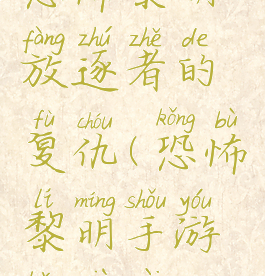 fàng zhú zhě de
放逐者的
fù chóu kǒng bù
复仇(恐怖
lí míng shǒu yóu
黎明手游